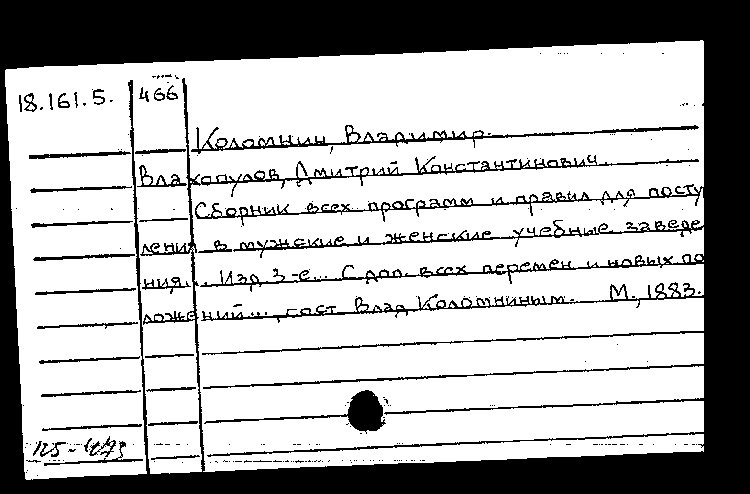 18.161.5. 466
Коломнин, Владимир.
Влахопулов, Дмитрий Константинович.
Сборник всех программ и правил для посту
ления в мужские и женские учебные заведе
ния... Изд. 3-е... С доп. всех перемен и новых по
ложений..., сост. Влад Коломниным. М., 1883.